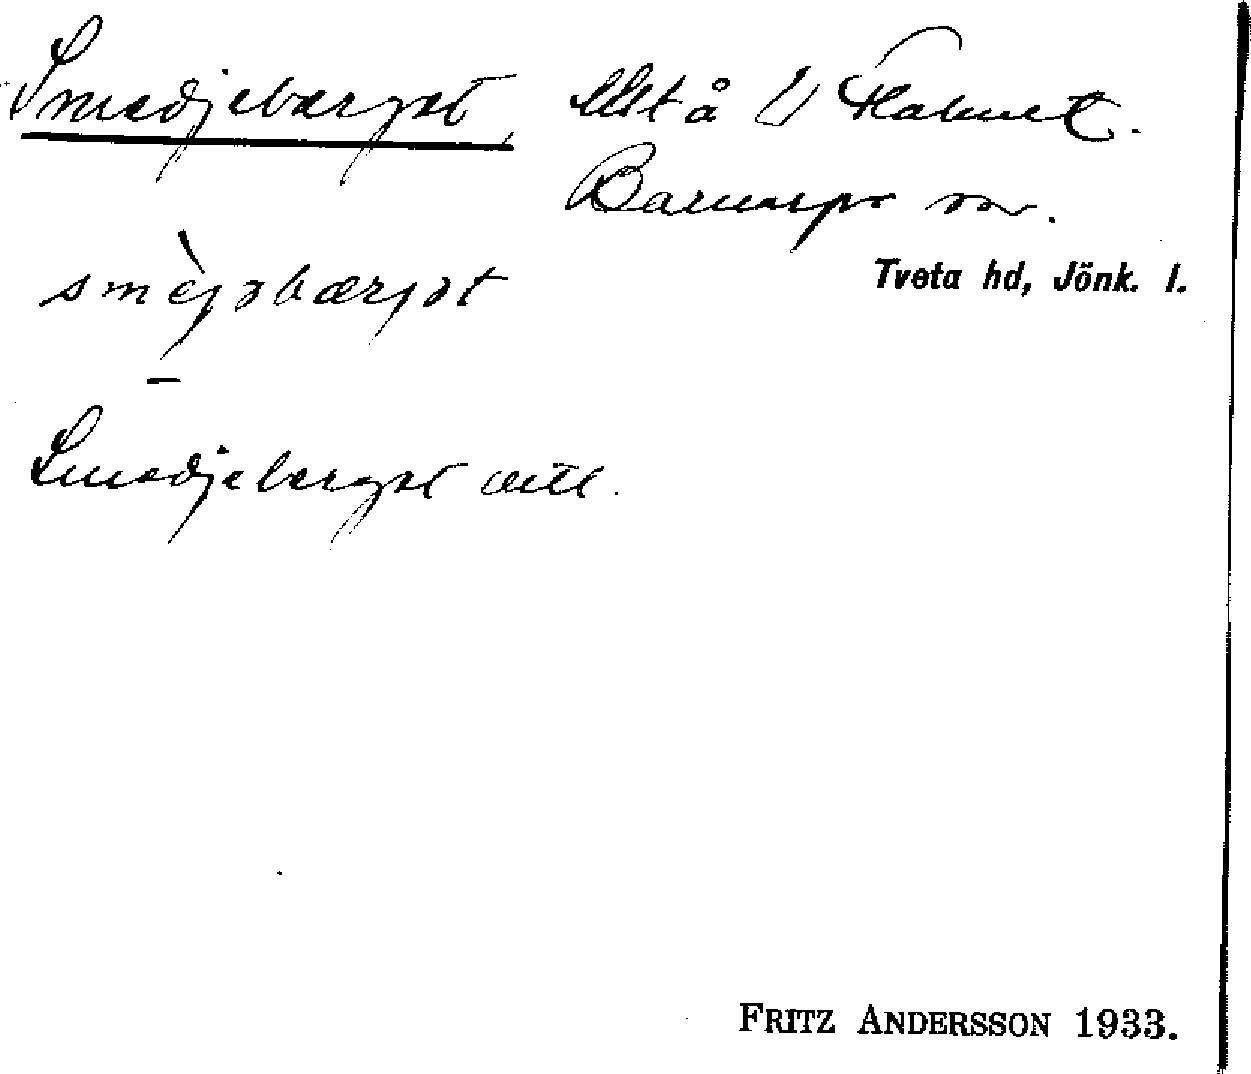 Smedjeberget lht å V Flahult.
Barnarps sn.
Tveta hd, Jönk. l.
smèjəbærjət
Smedjeberget
FRITZ ANDERSSON 1933.